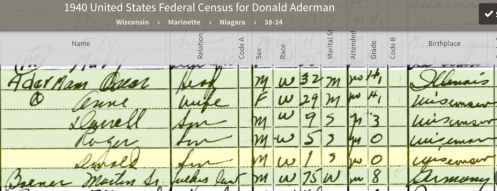 1940 United States Federal Census for Donald Aderman
Wisconsin > Marinette > Niagara > 38-24
Name Relation Code A Sex Race Marital S Attended Grade Code B Birthplace
Aderman Oscar Head M W 32 M no H1 Illinois
Anne Wife F W 29 M no H1 Wisconsin
Darrell Son M W 9 S 3 Wisconsin
Roger Son M W 5 S 0 Wisconsin
Donald Son M W 1 S no 0 Wisconsin
Martin Sr. M W 75 W no 8 Germany